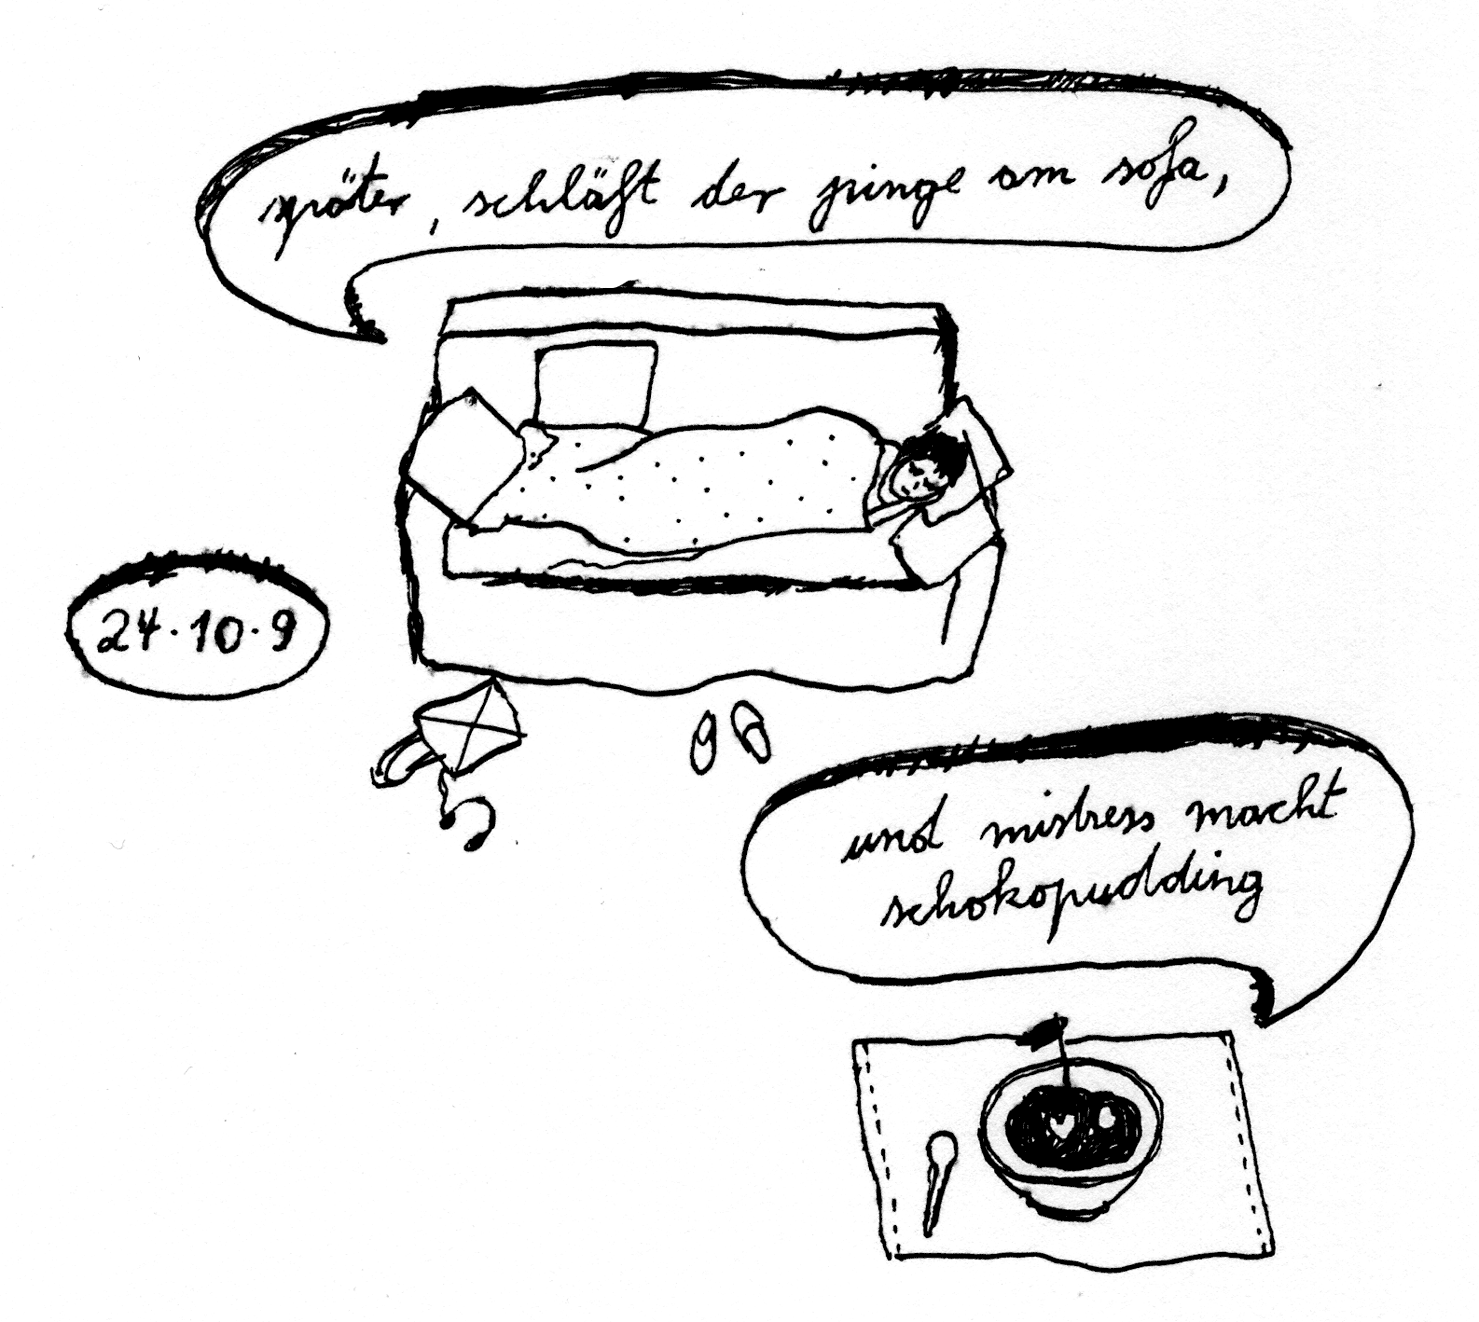 später, schläft der pinge am sofa,
24.10.9
und mistress macht
schokopudding